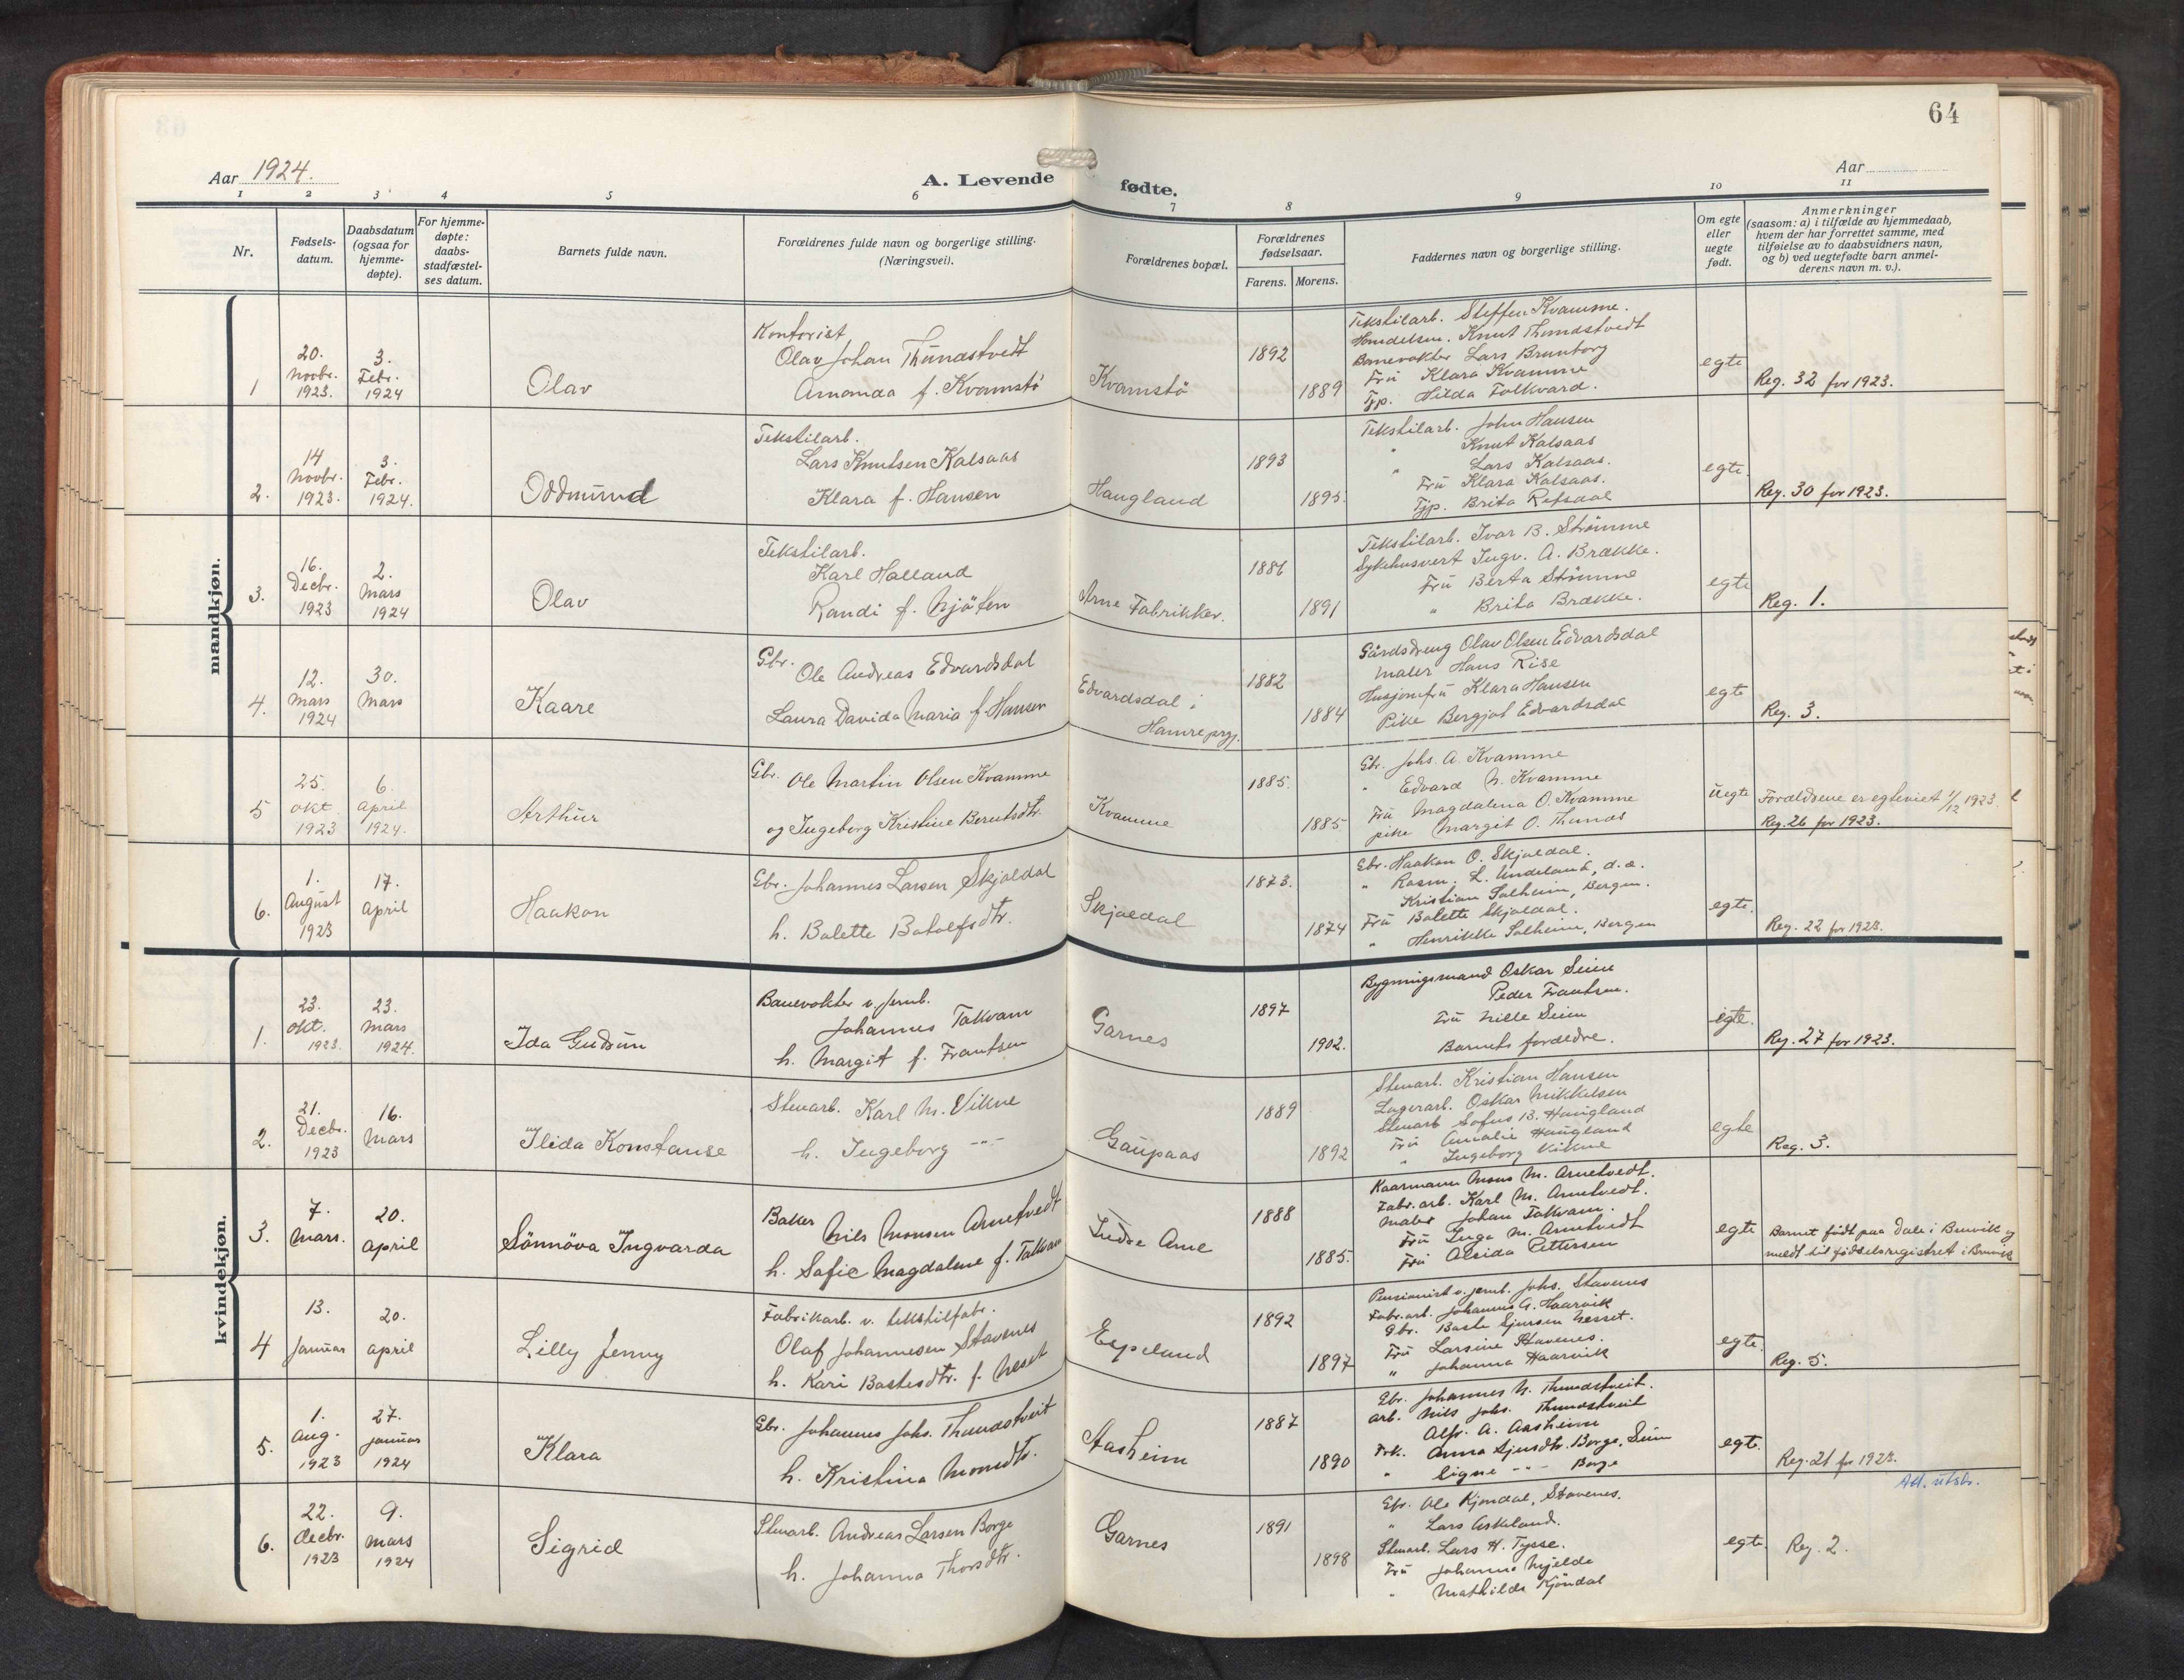 64
Aar 1924.
A. Levende fødte.
Aar
1 2 3 4 5 6 7 8 9 10 11
Nr.
Fødsels-
datum.
Daabsdatum
(ogsaa for
hjemme-
døpte).
For hjemme-
døpte:
daabs-
stadfæstel-
ses datum.
Barnets fulde navn.
Forældrenes fulde navn og borgerlige stilling.
(Næringsvei).
Forældrenes bopæl.
Forældrenes
fødselsaar.
Farens. Morens.
Faddernes navn og borgerlige stilling.
Om egte
eller
uegte
født.
Anmerkninger
(saasom: a) i tilfælde av hjemmedaab,
hvem der har forrettet samme, med
tilføielse av to daabsvidners navn,
og b) ved uegtefødte barn anmel-
derens navn m. v.).
mandkjøn.
1
20.
Novbr.
1923.
3.
Febr.
1924
Olav
Kontorist
Olav Johan Thunestvedt
Amanda f. Kvamstø
Kvamstø
1892
1889
Tekstilarb. Steffen Kvamme.
Handelsm. Knut Thunestvedt
Banevokter Lars Brunborg
Fru Klara Kvamme
Tjp. Hilda Folkvard.
egte
Reg. 32 for 1923.
2.
14
Novbr.
1923.
3.
Febr.
1924.
Oddmund
Tekstilarb.
Lars Knutsen Kalsaas
Klara f. Hansen
Haugland
1893
1895.
Tekstilarb. John Hansen
" Knut Kalsaas
" Lars Kalsaas.
Fru Klara Kalsaas.
Tjp. Brita Refsdal
egte
Reg. 30 for 1923.
3.
16.
Decbr.
1923
2.
Mars
1924
Olav
Tekstilarb.
Karl Halland
Randi f. Mjøten
Arne Fabrikker.
1886
1891
Tekstilarb. Ivar B. Strømme
Sykehusvert Ingv. A. Brække.
Fru Berta Strømme
" Brita Brække.
egte
Reg. 1.
4.
12.
Mars
1924
30.
Mars
Kaare
Gbr. Ole Andreas Edvardsdal
Laura Davida Maria f. Hansen
Edvardsdal i
Hamre prgj.
1882
1884
Gårdsdreng Olav Olsen Edvardsdal
Maler Hans Rise
Husjomfru Klara Hansen
Pike Bergjot Edvardsdal
egte
Reg. 3.
5
25.
Okt.
1923
6.
April
1924.
Arthur
Gbr. Ole Martin Olsen Kvamme
og Ingeborg Kristine Berntsdtr.
Kvamme
1885.
1885.
Gbr. Johs. A. Kvamme
" Edvard N. Kvamme
Fru Magdalena O. Kvamme
pike Margit O. Thunes
uegte
Foreldrene er egteviet 1/12 1923.
Reg. 26 for 1923.
6.
1.
August
1923
17.
April
Haakon
Gbr. Johannes Larsen Skjældal
h. Bolette Botolfsdtr.
Skjældal
1873.
1874
Gbr. Haakon O. Skjældal.
" Rasm. L. Undeland, d.æ.
Kristian Solheim, Bergen.
Fru Bolette Skjældal.
" Henrikke Solheim, Bergen
egte.
Reg. 22 for 1923.
kvindekjøn.
1.
23.
Okt.
1923.
23.
Mars
1924.
Ida Gudrun
Banevokter v. Jernb.
Johannes Takvam
h. Margit f. Frantsen
Garnes
1897
1902.
Bygningsmand Oskar Seim
Peder Frantsen.
Fru Nille Seim
Barnets foreldre.
egte.
Reg. 27 for 1923.
2.
21.
Decbr.
1923
16.
Mars
Ilida Konstanse
Stenarb. Karl M. Vikne
h. Ingeborg -"-
Gaupaas
1889
1892
Stenarb. Kristian Hansen
Lagerarb. Oskar Mikkelsen
Stenarb. Sofus B. Haugland
Fru Amalie Haugland
" Ingeborg Vikne
egte
Reg. 3.
3.
7.
Mars.
20.
April
Sønnøva Ingvarda
Baker Nils Monsen Arnetvedt
h. Sofie Magdalene f. Takvam
Indre Arne
1888
1885.
Kaarmann Mons M. Arnetvedt.
Fabr.arb. Karl M. Arnetvedt.
Maler Johan Takvam.
Fru Inga M. Arnetvedt
Fru Alvida Pettersen
egte
Barnet født paa Dale i Bruvik og
meldt til fødselsregistret i Bruvik
4
13.
Januar
20.
April
Lilly Jenny
Fabrikarb. v. tekstilfabr.
Olaf Johannesen Stavenes
h. Kari Bastesdtr. f. Neset
Espeland
1892
1897
Pensionist v. jernb. Johs. Stavenes
Fabr.arb. Johannes A. Haarvik
Gbr. Baste Sjursen Nesset.
Fru Larsine Stavenes.
" Johanna Haarvik
egte.
Reg. 5.
5.
1.
Aug.
1923
27.
Januar
1924
Klara
Gbr. Johannes Johs. Thunestveit
h. Kristina Monsdtr.
Aasheim
1887
1890
Gbr. Johannes N. Thunestveit.
Arb. Nils Johs. Thunestveit
Alfr. A. Aasheim
Frk. Anna Sjursdtr. Borge, Seim
" Signe -"- Borge
egte.
Reg. 21 for 1923.
Att. utstv.
6.
22.
Decbr.
1923
9.
Mars
1924
Sigrid
Stenarb. Andreas Larsen Borge
h. Johanna Thorsdtr.
Garnes
1891
1898
Gbr. Ole Kjøndal, Stavenes.
" Lars Askeland.
Stenarb. Lars H. Tysse.
Fru Johanne Mjelde
" Mathilde Kjøndal
egte.
Reg. 2.